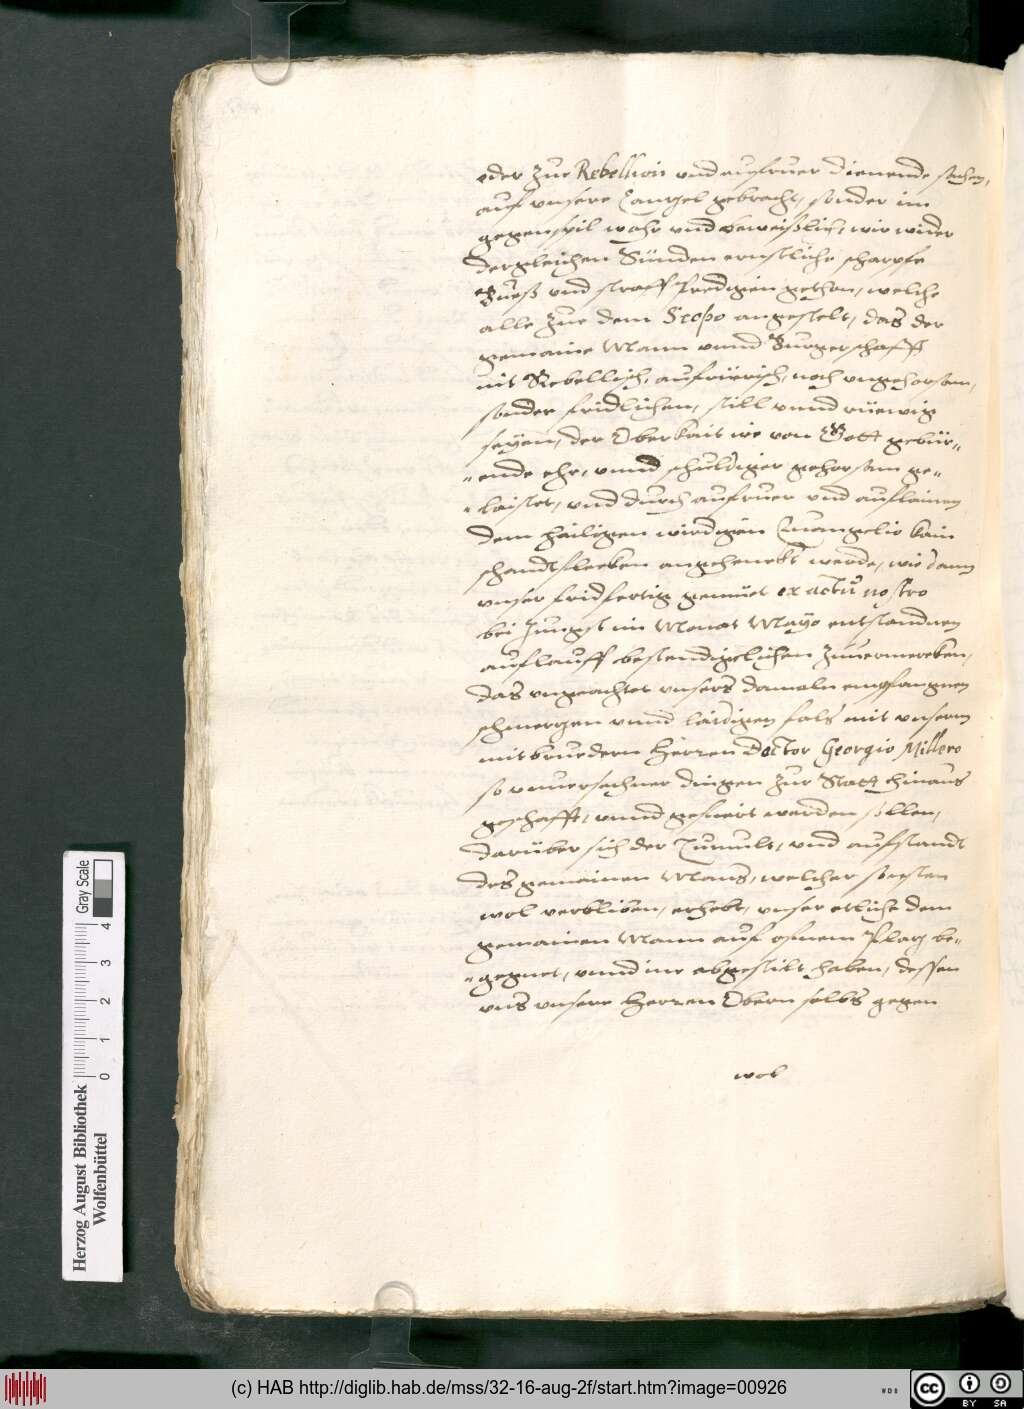 oder zue Rebellion und aufruer dienende sachen,
auf unsere Canzel gebracht, sonder im
gegenspil wahr und beweißlich, wir wider
dergleichen Sünden ernstliche scharpfe
Bueß und straff Predigen gethon, welche
alle zue dem Scopo angestelt, das der
gemaine Mann unnd Burgerschafft
nit Rebellisch, aufrüerisch, noch ungehorsam,
sonder fridlichen, still unnd rüewig
seyen, der Oberkait ire von Gott gebür„
„ende ehr, unnd schuldiger gehorsam ge„
„laistet, und durch aufruer und auflainen
dem hailigen wirdigen Euangelio kain
schandtflecken angehenckt werde, wie dann
unser fridfertig gemüet ex actu nostro
bei jungst im Monat Mayo entstandnen
auflauff bestendigclichen zuuermercken,
das ungeachtet unsers damaln empfangnen
schmerzen unnd laidigen fals mit unserm
mitbruedern Herren Doctor Georgio Millero
so unuersechner dingen zur Statt hinaus
geschafft, unnd gefuert werden sollen,
darüber sich der Tumult, und aufstandt
des gemainen Mans, welcher sonsten
wol verbliben, erhebt, unser etliche dem
gemainen Mann auf ofnem Plaz be„
„gegnet, unnd ine abgestilt haben, dessen
uns unsere Herren Obern selbs gegen
wol
Gray Scale
0 1 2 3 4
Herzog August Bibliothek
Wolfenbüttel
(c) HAB http://diglib.hab.de/mss/32-16-aug-2f/start.htm?image=00926
WDB
cc BY SA